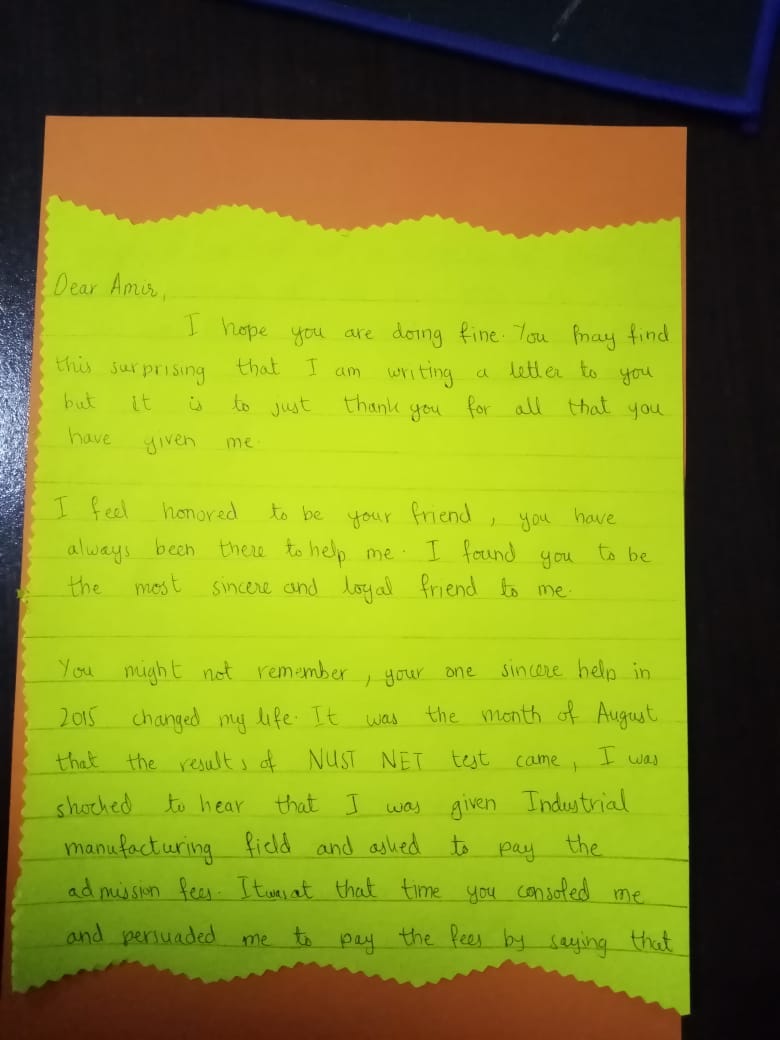 Dear Amir,
I hope you are doing fine. You may find
this surprising that I am writing a letter to you
but it is to just thank you for all that you
have given me.
I feel honored to be your friend, you have
always been there to help me. I found you to be
the most sincere and loyal friend to me.
You might not remember, your one sincere help in
2015 changed my life. It was the month of August
that the results of NUST NET test came, I was
shocked to hear that I was given Industrial
manufacturing field and asked to pay the
admission fees. It was at that time you consoled me
and persuaded me to pay the fees by saying that